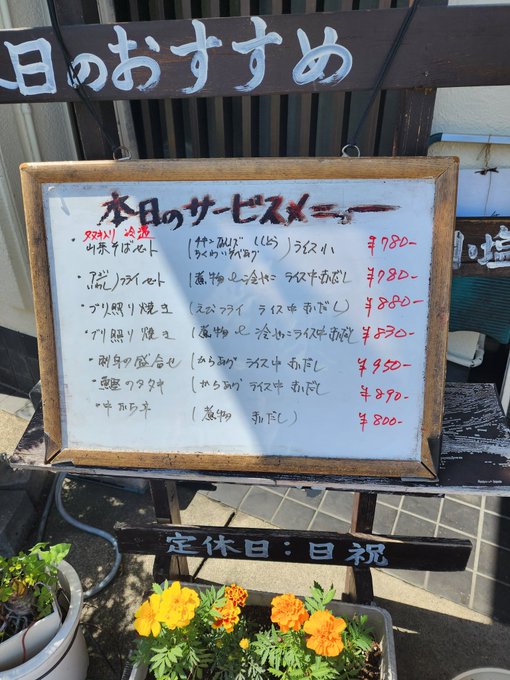 日のおすすめ
本日のサービスメニュー
冷温
・山菜そばセット ( ししとう ) ライス小 ¥780-
・アジ フライセット (煮物 or 冷やっこ ライス中 赤だし ¥780-
・ブリ照り焼き (えびフライ ライス中 赤だし) ¥880-
・ブリ照り焼き (煮物 or 冷やっこ ライス中 赤だし ¥830-
・刺身の盛合せ (からあげ ライス中 赤だし ¥950-
・鰹のタタキ (からあげ ライス中 赤だし ¥890-
・中から丼 (煮物 赤だし) ¥800-
定休日：日祝
塩